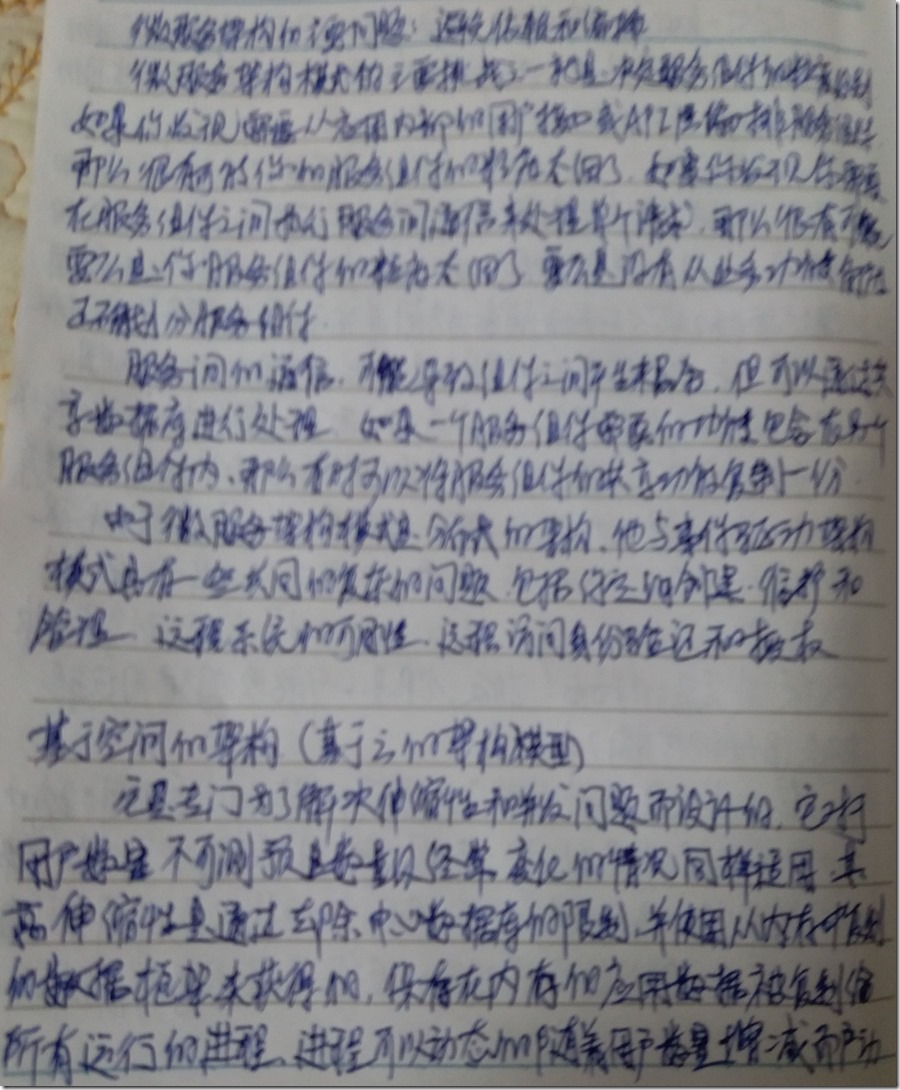 微服务架构的主要问题：避免依赖和编排
微服务架构模式的主要挑战之一就是决定服务组件的粒度级别
如果你发现需要从应用内部的用户接口或API层编排服务组件
那么很有可能你的服务组件的粒度太细了，如果你发现你需要
在服务组件之间执行服务间通信来处理单个请求，那么很有可能
要么是你服务组件的粒度太细了 要么是没有从业务功能角度
正确划分服务组件.
服务间的通信，可能导致组件之间产生耦合，但可以通过共
享数据库进行处理 如果一个服务组件需要的功能包含在另一个
服务组件内，那么有时可以将服务组件的共享功能复制一份.
由于微服务架构模式是分布式的架构，他与事件驱动架构
模式具有一些共同的复杂的问题 包括约定的创建·维护和
管理、远程系统的可用性、远程访问身份验证和授权
基于空间的架构（基于云的架构模型）
它是专门为了解决伸缩性和并发问题而设计的，它对
用户数量不可预测且数量级经常变化的情况同样适用.其
高伸缩性是通过去除中心数据库的限制，并使用从内存中复制
的数据框架来获得的，保存在内存的应用数据被复制给
所有运行的进程、进程可以动态的随着用户数量增减而启动